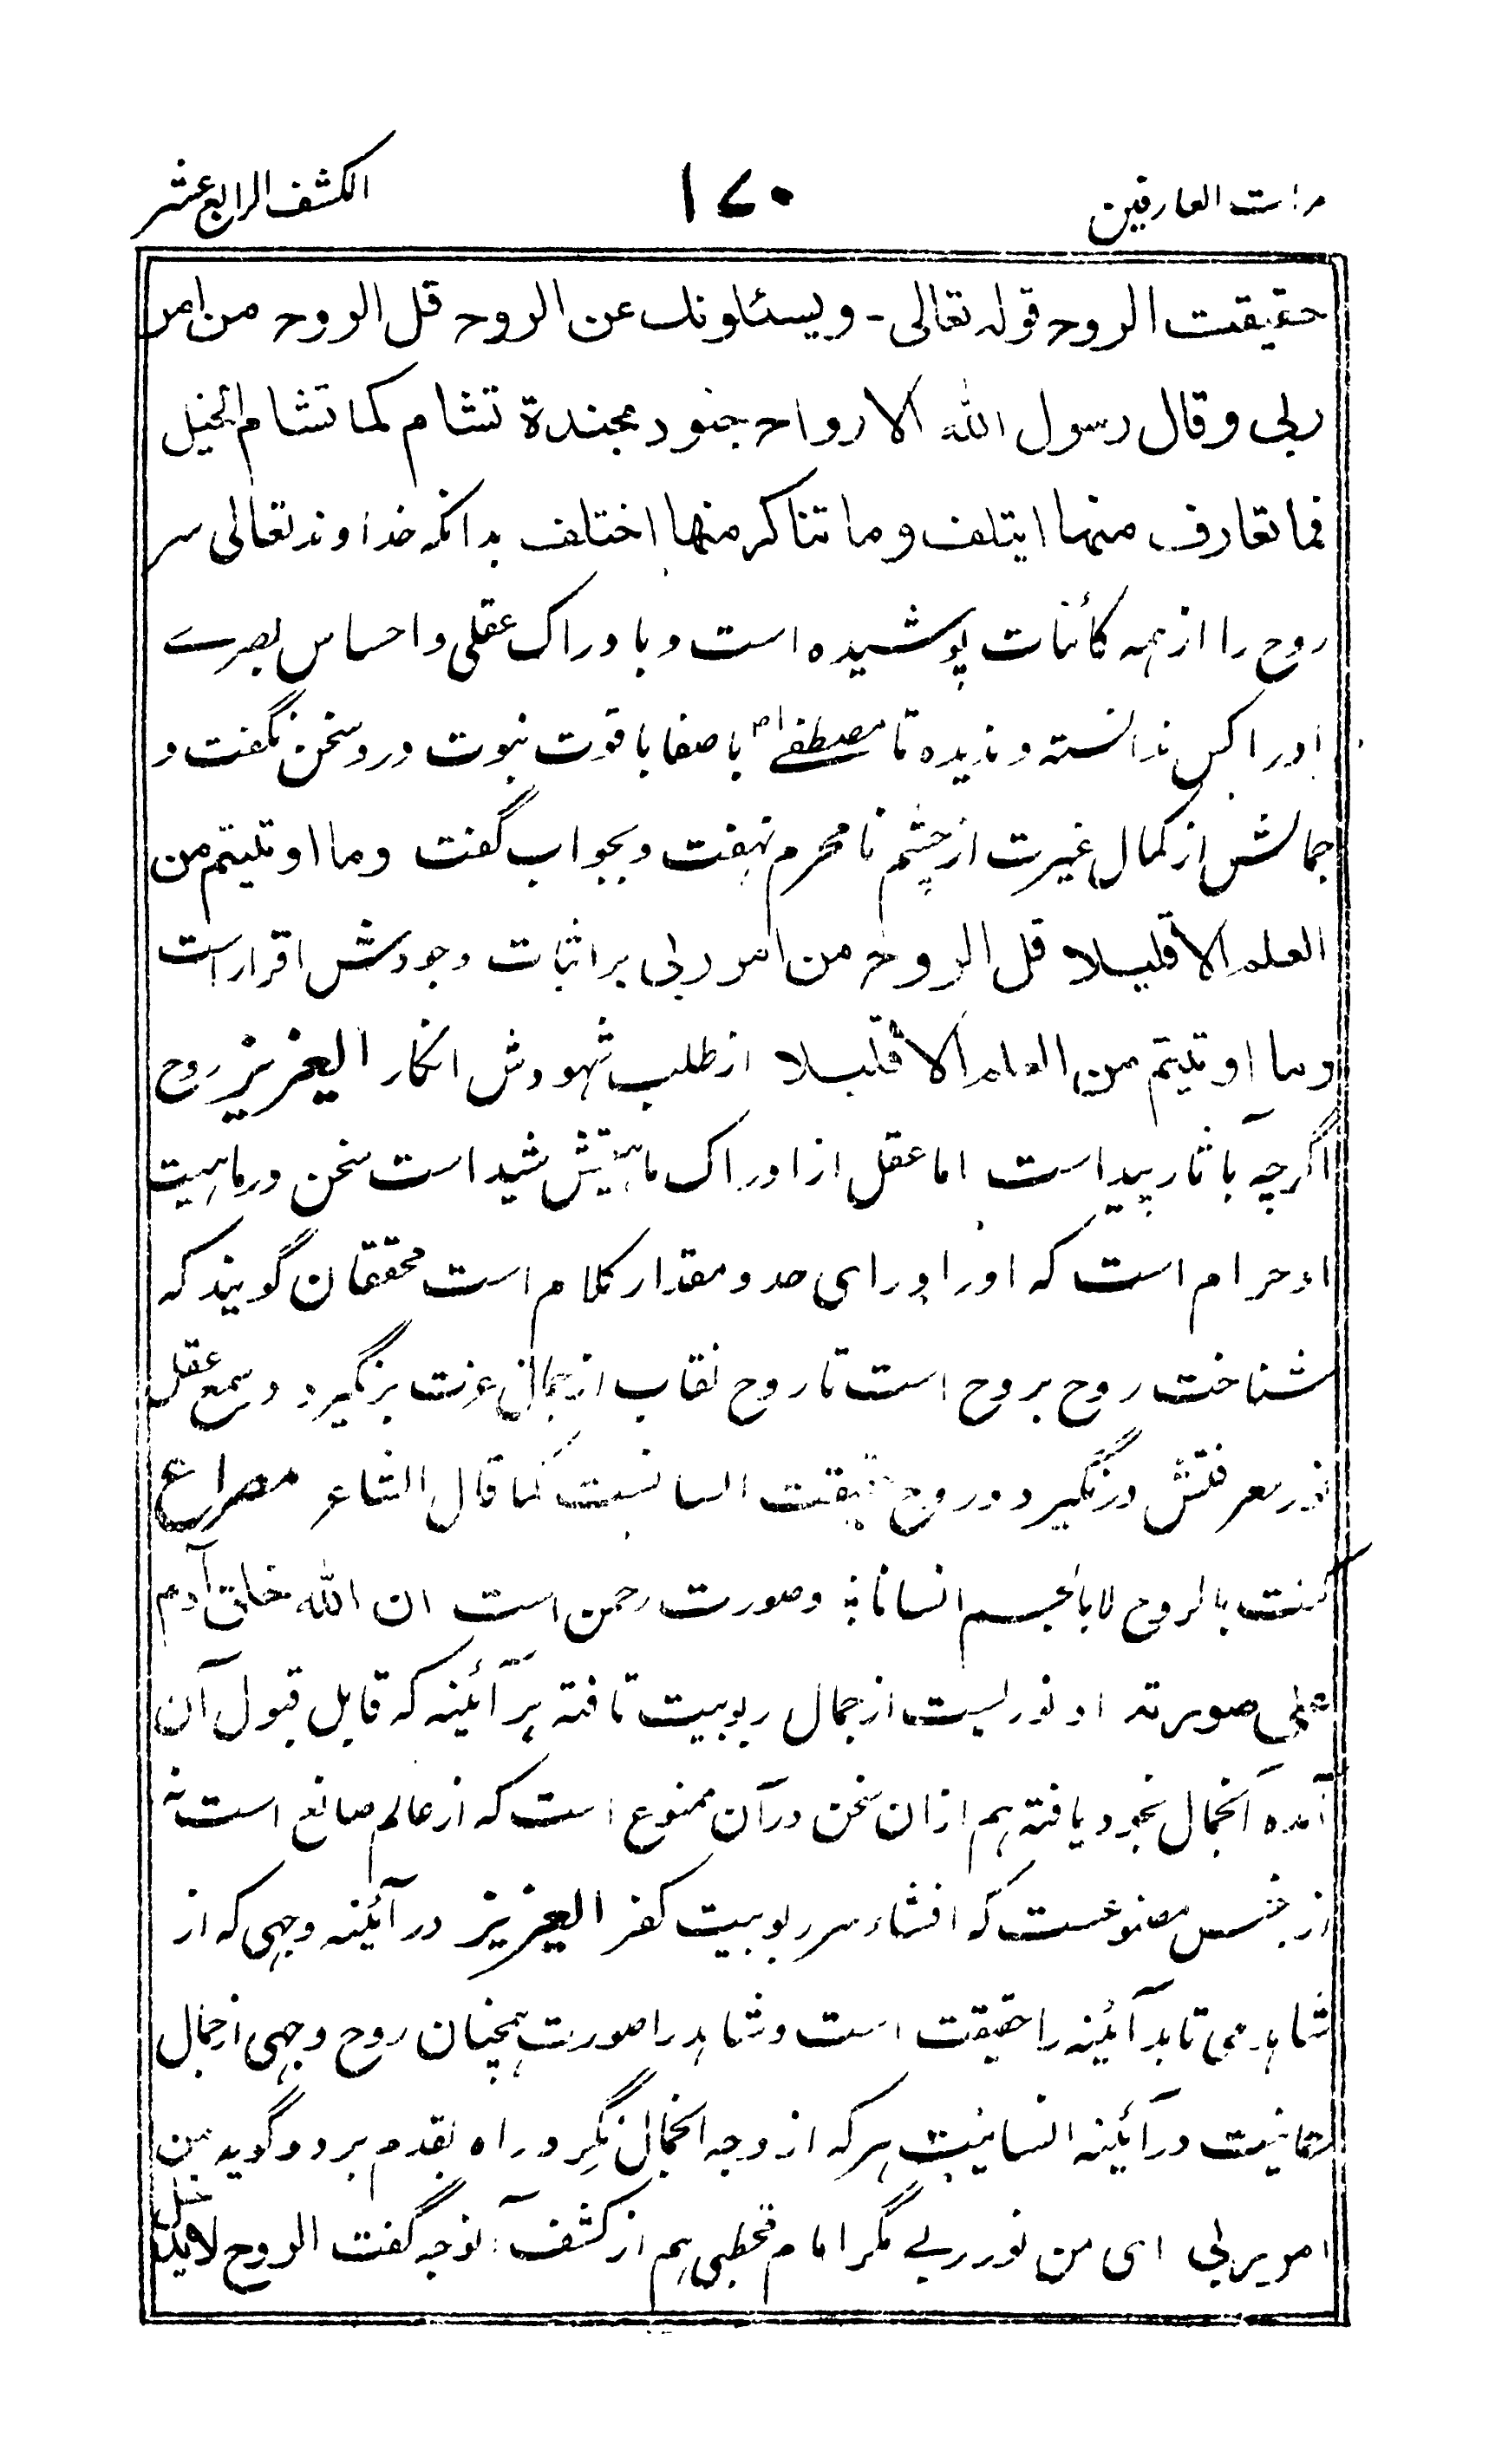 مرات العارفین ۱۷۰ الکشف الرابع عشر
حقیقت الروح قوله تعالی - ویسئلونک عن الروح قل الروح من امر
ربی وقال رسول الله الارواح جنود مجندة تشام کما تشام الخیل
فما تعارف منها ایتلف وما تناکر منها اختلف بدانکه خداوند تعالی سر
روح را از همه کائنات پوشیده است و بادراک عقلی و احساس بصرے
او را کس ندانسته و ندیده تا مصطفےٰ ص با صفا با قوت نبوت درو سخن نگفت و
جمالش از کمال غیرت از چشم نامحرم نهفت و بجواب گفت وما اوتیتم من
العلم الا قلیلا قل الروح من امر ربی بر اثبات وجودش اقرار است
وما اوتیتم من العلم الا قلیلا از طلب شهودش انکار العزیز روح
اگرچه بآثار پیدا است اما عقل از ادراک ماهیتش شیدا است سخن در ماهیت
او حرام است که او را ورای حد و مقدار کلام است محققان گویند که
شناخت روح بروح است تا روح نقاب از جمال عزت برنگیرد و سمع عقل
نور معرفتش درنگیرد و روح حقیقت انسانیست کما قال الشاعر مصراع
کنت بالروح لا بالجسم انسانا؛ و صورت رحمن است ان الله خلق آدم
علی صورته او نوریست از جمال ربوبیت تافته بر آئینه که قابل قبول آن
آمده آنجمال بخود یافته هم ازان سخن درآن ممنوع است که از عالم صانع است نه
از جنس مصنوعست که افشاء سر ربوبیت کفر العزیز در آئینه وجهی که از
شاهد می تابد آئینه را حقیقت است و شاهد را صورت همچنان روح وجهی از جمال
حقانیت در آئینه انسانیت هر که از وجه آنجمال نگرد راه بقدم برد و گوید من
امر ربی ای من نور ربے مگر امام قحطبی هم از کشف آنوجه گفت الروح لا یدخل